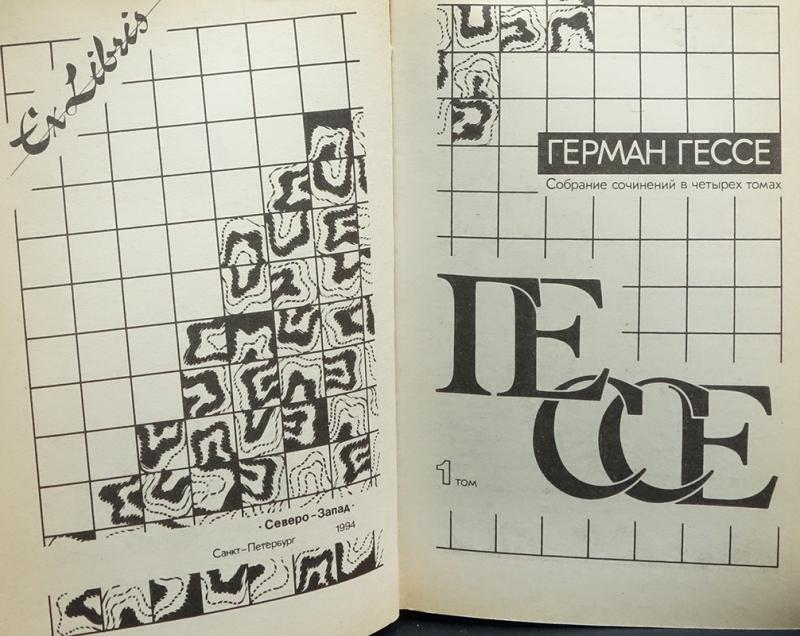 Ex Libris
· Северо-Запад ·
Санкт-Петербург 1994
ГЕРМАН ГЕССЕ
Собрание сочинений в четырех томах
ГЕССЕ
1 том